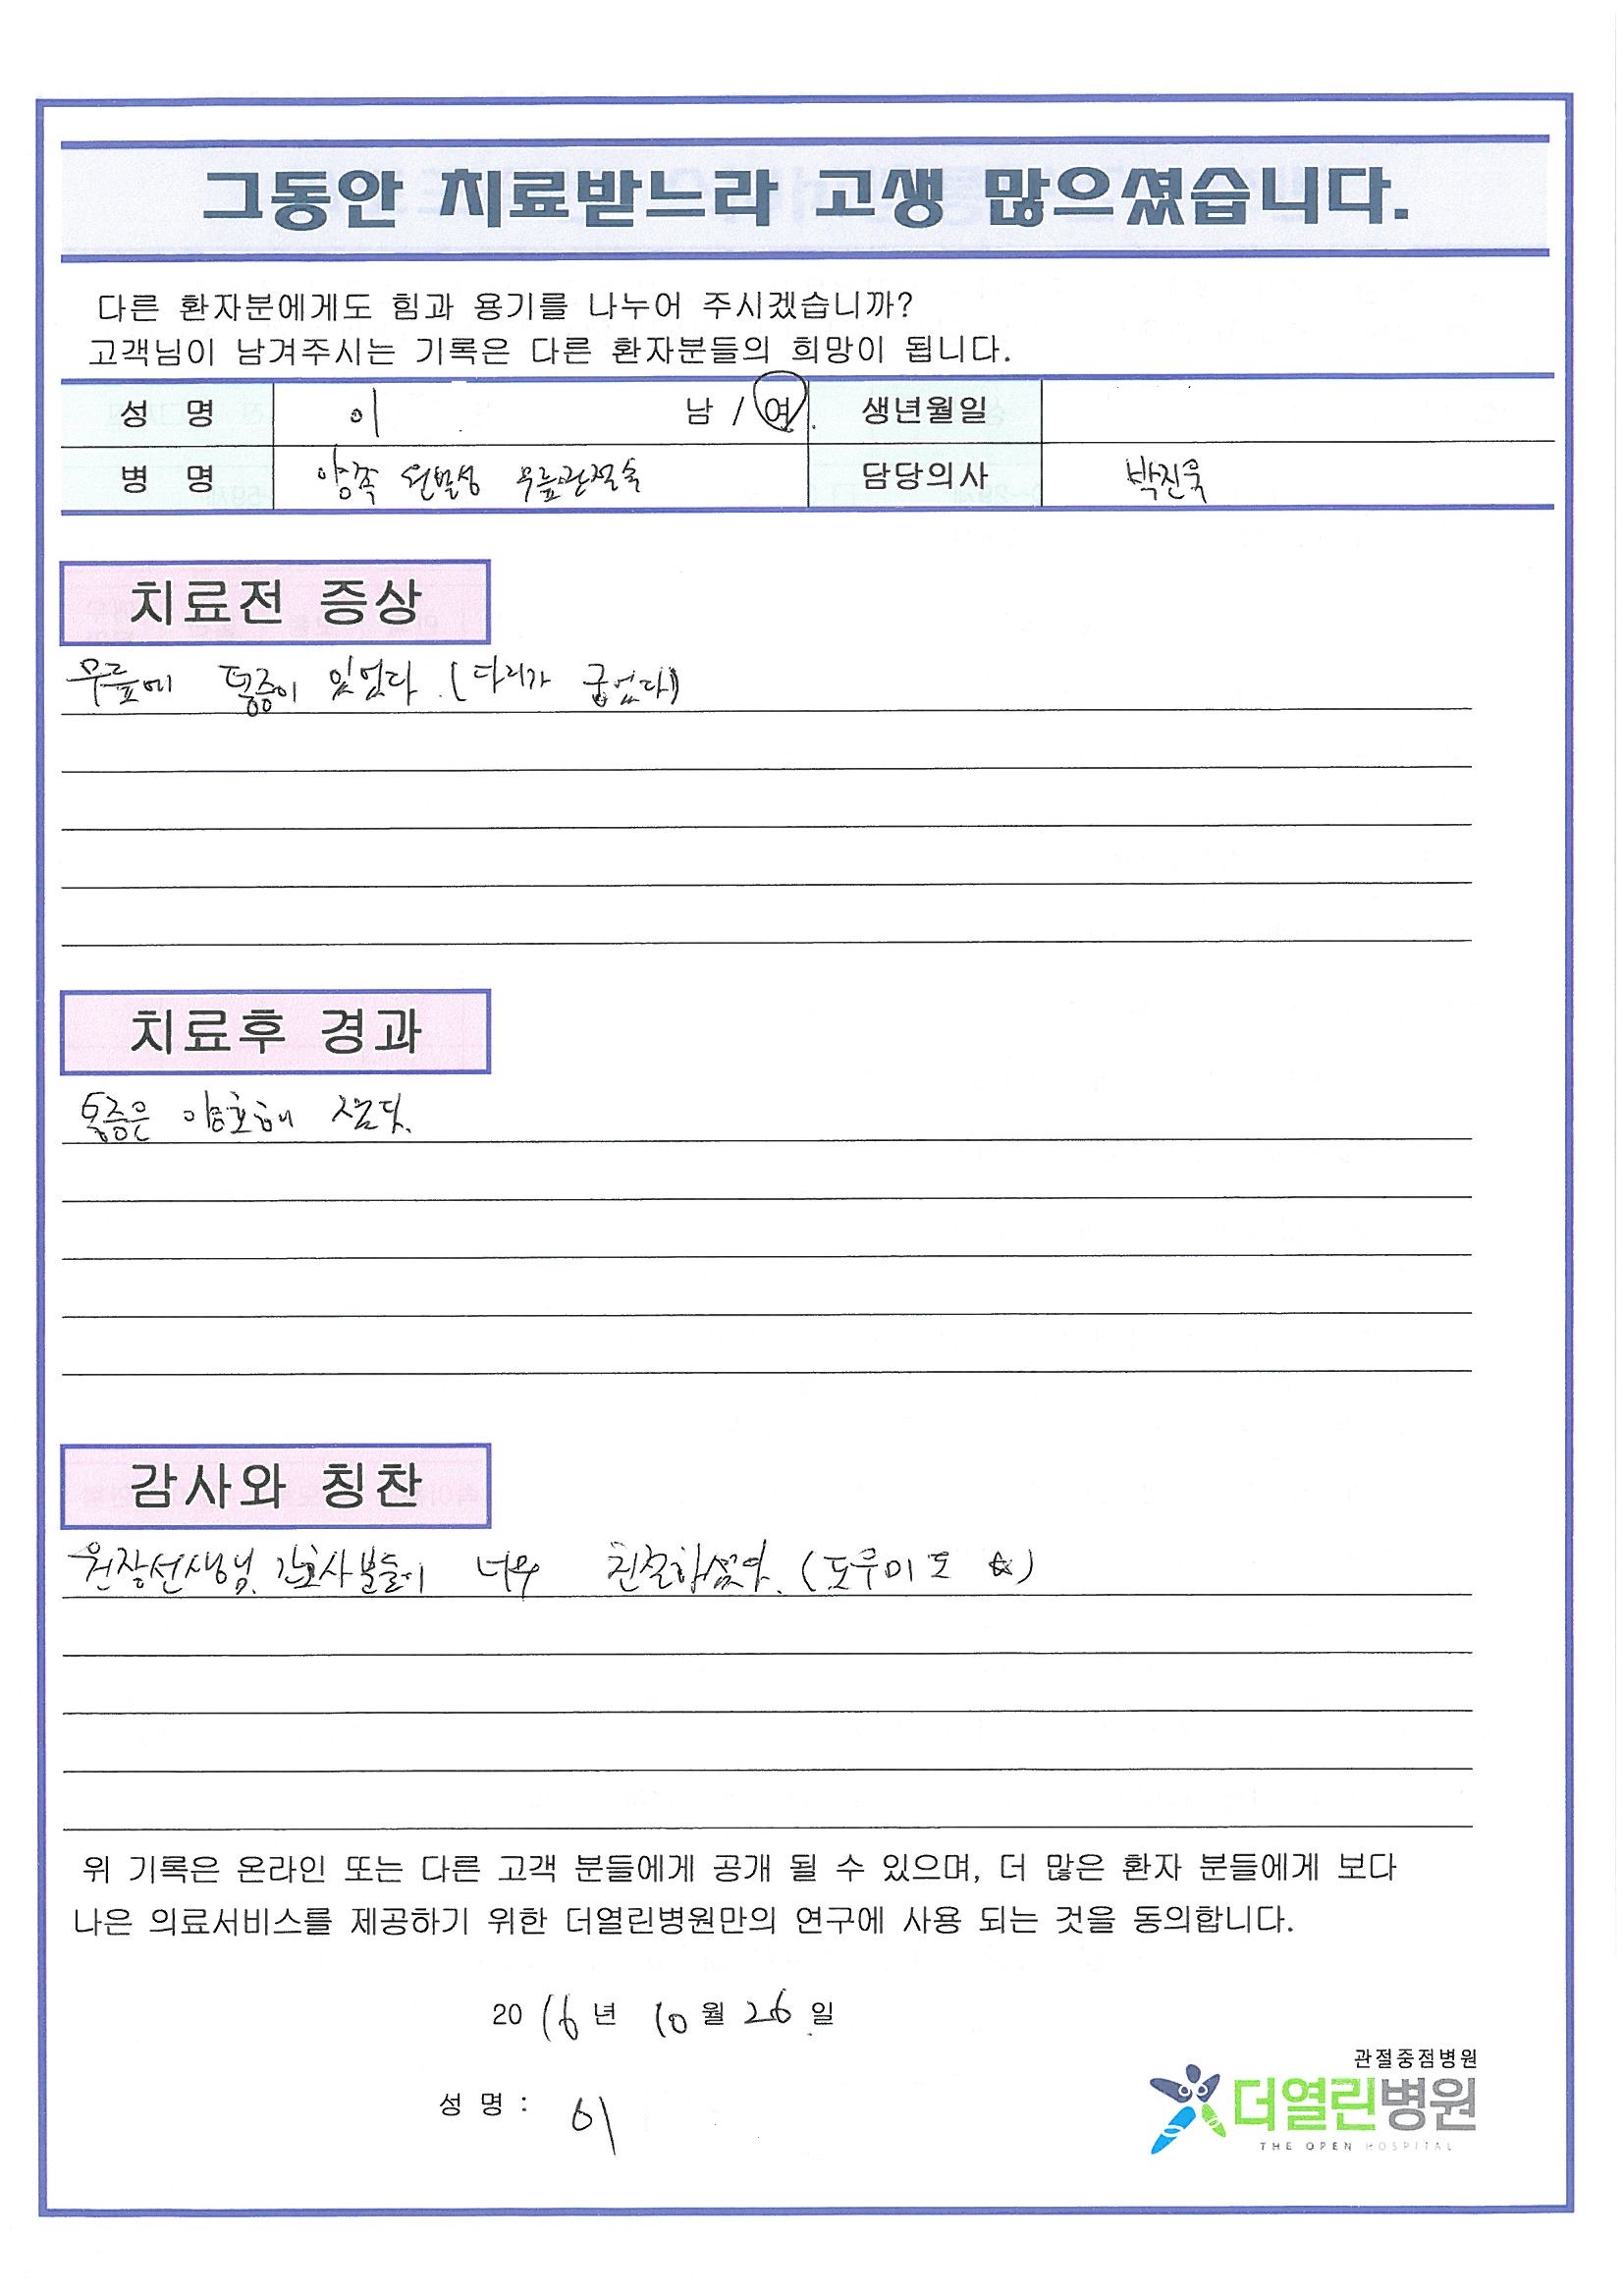 그동안 치료받느라 고생 많으셨습니다.
다른 환자분에게도 힘과 용기를 나누어 주시겠습니까?
고객님이 남겨주시는 기록은 다른 환자분들의 희망이 됩니다.
성 명 이 남 / 여 생년월일
병 명 양쪽 원발성 무릎관절술 담당의사 박진욱
치료전 증상
무릎에 통증이 있었다. (다리가 굽었다)
치료후 경과
통증은 양호해
감사와 칭찬
원장선생님, 간호사분들이 너무 (도우미도 ☆)
위 기록은 온라인 또는 다른 고객 분들에게 공개 될 수 있으며, 더 많은 환자 분들에게 보다
나은 의료서비스를 제공하기 위한 더열린병원만의 연구에 사용 되는 것을 동의합니다.
2016년 10월 26일
성 명 : 이
관절중점병원
더열린병원
THE OPEN HOSPITAL